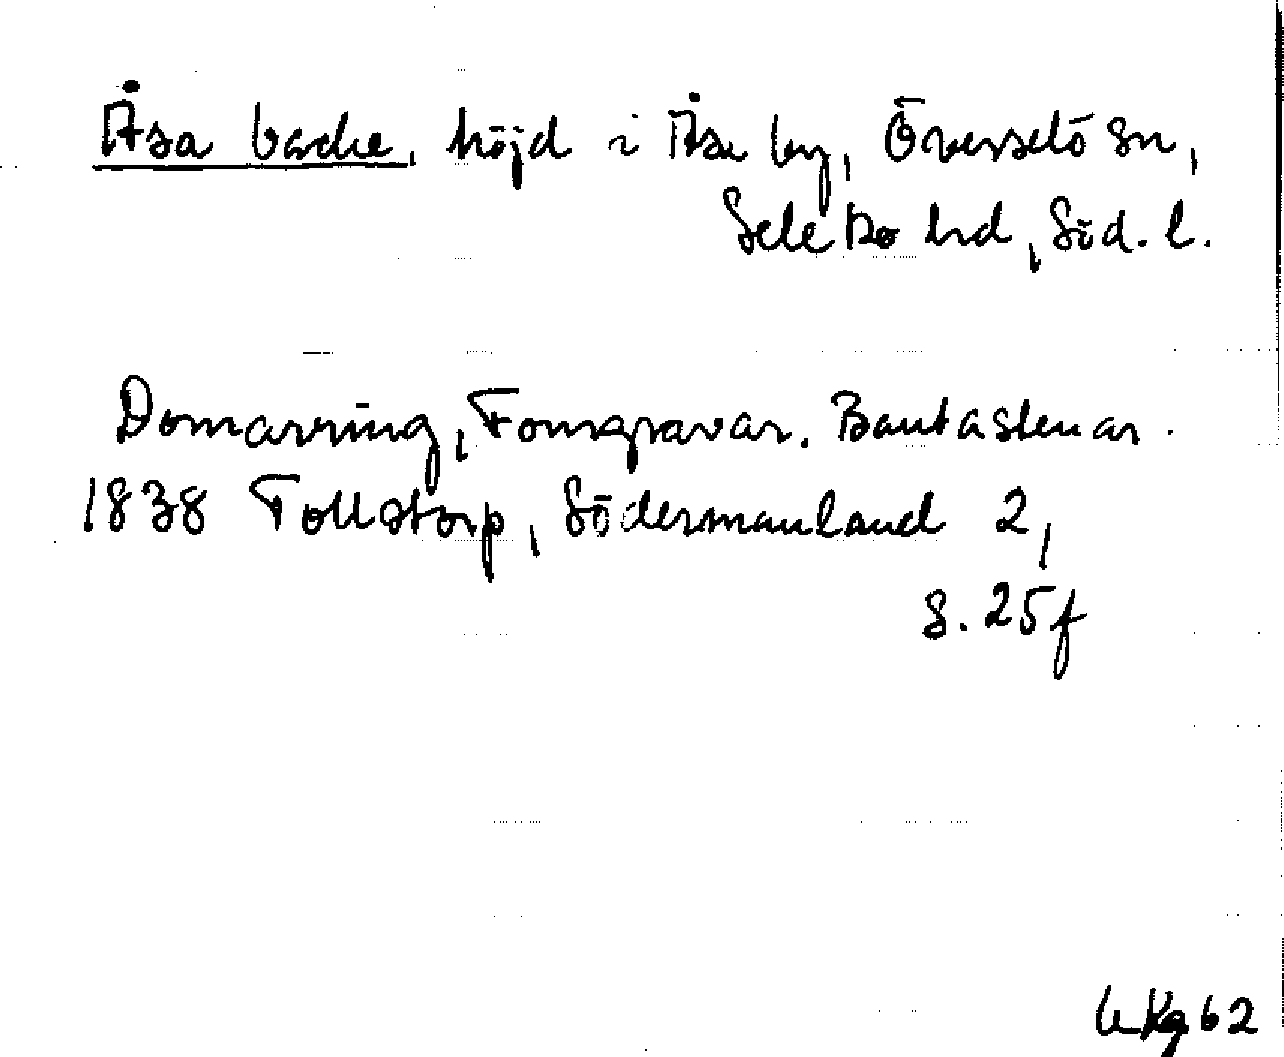 Åsa backe, höjd i Åsa by, Överselö sn,
Selebo hd, Söd. l.
Domarring, Forngravar. Bautastenar.
1838 Tollstorp, Södermanland 2,
s. 25f
62